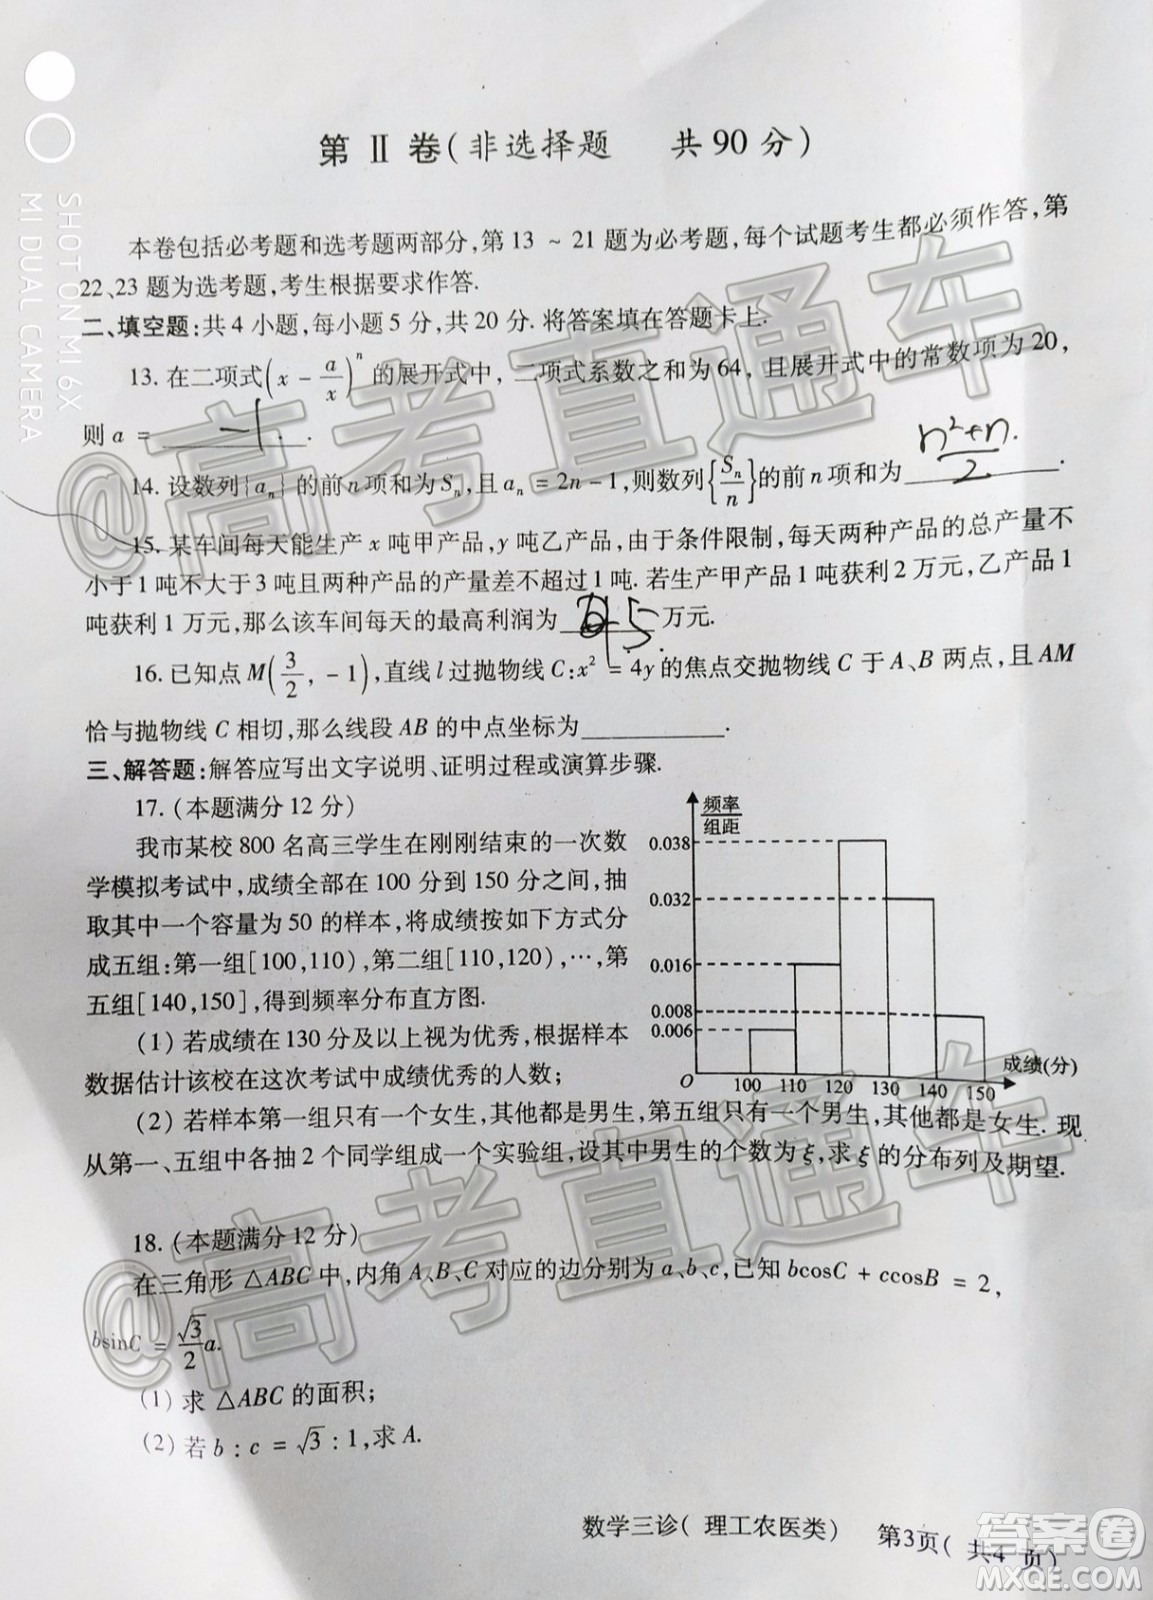 SHOT ON MI 6X
MI DUAL CAMERA
第 Ⅱ 卷(非选择题 共90分)
本卷包括必考题和选考题两部分,第13～21题为必考题,每个试题考生都必须作答,第
22、23题为选考题,考生根据要求作答.
二、填空题:共4小题,每小题5分,共20分.将答案填在答题卡上.
13.在二项式(x - a/x)^n的展开式中,二项式系数之和为64,且展开式中的常数项为20,
则a = -1 .
14.设数列{a_n}的前n项和为S_n,且a_n = 2n-1,则数列{S_n/n}的前n项和为 n²+n/2 .
15.某车间每天能生产x吨甲产品,y吨乙产品,由于条件限制,每天两种产品的总产量不
小于1吨不大于3吨且两种产品的产量差不超过1吨.若生产甲产品1吨获利2万元,乙产品1
吨获利1万元,那么该车间每天的最高利润为 5 万元.
16.已知点M(3/2,-1),直线l过抛物线C:x² = 4y的焦点交抛物线C于A、B两点,且AM
恰与抛物线C相切,那么线段AB的中点坐标为 .
三、解答题:解答应写出文字说明、证明过程或演算步骤.
17.(本题满分12分)
我市某校800名高三学生在刚刚结束的一次数
学模拟考试中,成绩全部在100分到150分之间,抽
取其中一个容量为50的样本,将成绩按如下方式分
成五组:第一组[100,110),第二组[110,120),…,第
五组[140,150],得到频率分布直方图.
(1)若成绩在130分及以上视为优秀,根据样本
数据估计该校在这次考试中成绩优秀的人数;
频率
组距
0.038
0.032
0.016
0.008
0.006
O 100 110 120 130 140 150 成绩(分)
(2)若样本第一组只有一个女生,其他都是男生,第五组只有一个男生,其他都是女生.现
从第一、五组中各抽2个同学组成一个实验组,设其中男生的个数为ξ,求ξ的分布列及期望.
18.(本题满分12分)
在三角形△ABC中,内角A、B、C对应的边分别为a、b、c,已知bcosC + ccosB = 2,
bsinC = √3/2 a.
(1)求△ABC的面积;
(2)若b:c = √3:1,求A.
数学三诊(理工农医类) 第3页(共4页)
@高考直通车
@高考直通车
答案圈
MXQE.COM